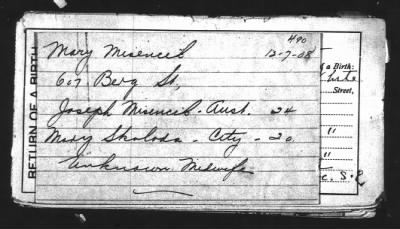 490
Mary Misencil 12-7-08
607 Berg St,
Joseph Misencil - Aust. 24
Mary Skoloda - City - 20
Unknown Midwife
RETURN OF A BIRTH
of a Birth:
Street,
"
"